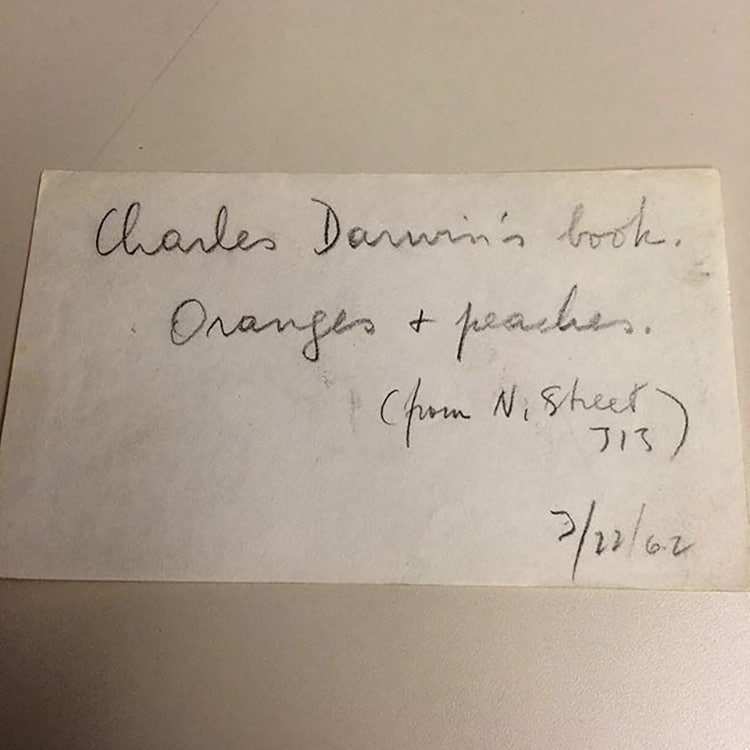 Charles Darwin's book.
Oranges + peaches.
(from N. Street
313)
3/22/62